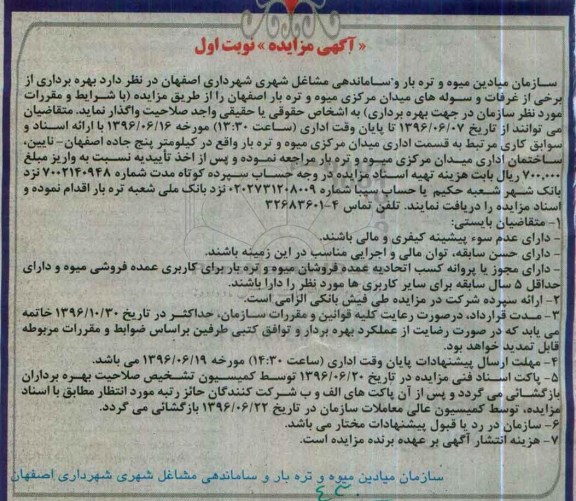 « آگهی مزایده » نوبت اول
سازمان میادین میوه و تره بار و ساماندهی مشاغل شهری شهرداری اصفهان در نظر دارد بهره برداری از
برخی از غرفات و سوله های میدان مرکزی میوه و تره بار اصفهان را از طریق مزایده (با شرایط و مقررات
مورد نظر سازمان در جهت بهره برداری) به اشخاص حقوقی یا حقیقی واجد صلاحیت واگذار نماید. متقاضیان
می توانند از تاریخ ۱۳۹۶/۰۶/۰۷ تا پایان وقت اداری (ساعت ۱۳:۳۰) مورخه ۱۳۹۶/۰۶/۱۶ با ارائه اسناد و
سوابق کاری مرتبط به قسمت اداری میدان مرکزی میوه و تره بار واقع در کیلومتر پنج جاده اصفهان - نایین،
ساختمان اداری میدان مرکزی میوه و تره بار مراجعه نموده و پس از اخذ تأییدیه نسبت به واریز مبلغ
۷۰۰,۰۰۰ ریال بابت هزینه تهیه اسناد مزایده در وجه حساب سپرده کوتاه مدت شماره ۷۰۰۲۱۴۰۹۴۸ نزد
بانک شهر شعبه حکیم یا حساب سیبا شماره ۰۲۰۲۷۳۱۲۰۸۰۰۹ نزد بانک ملی شعبه تره بار اقدام نموده و
اسناد مزایده را دریافت نمایند. تلفن تماس ۴-۳۲۶۸۳۶۰۱
۱- متقاضیان بایستی:
- دارای عدم سوء پیشینه کیفری و مالی باشند.
- دارای حسن سابقه، توان مالی و اجرایی مناسب در این زمینه باشند.
- دارای مجوز یا پروانه کسب اتحادیه عمده فروشان میوه و تره بار برای کاربری عمده فروشی میوه و دارای
حداقل ۵ سال سابقه برای سایر کاربری ها مورد نظر را دارا باشند.
۲- ارائه سپرده شرکت در مزایده طی فیش بانکی الزامی است.
۳- مدت قرارداد، درصورت رعایت کلیه قوانین و مقررات سازمان، حداکثر در تاریخ ۱۳۹۶/۱۰/۳۰ خاتمه
می یابد که در صورت رضایت از عملکرد بهره بردار و توافق کتبی طرفین براساس ضوابط و مقررات مربوطه
قابل تمدید خواهد بود.
۴- مهلت ارسال پیشنهادات پایان وقت اداری (ساعت ۱۴:۳۰) مورخه ۱۳۹۶/۰۶/۱۹ می باشد.
۵- پاکت اسناد فنی مزایده در تاریخ ۱۳۹۶/۰۶/۲۰ توسط کمیسیون تشخیص صلاحیت بهره برداران
بازگشائی می گردد و پس از آن پاکت های الف و ب شرکت کنندگان حائز رتبه مورد انتظار مطابق با اسناد
مزایده، توسط کمیسیون عالی معاملات سازمان در تاریخ ۱۳۹۶/۰۶/۲۲ بازگشائی می گردد.
۶- سازمان در رد یا قبول پیشنهادات مختار می باشد.
۷- هزینه انتشار آگهی بر عهده برنده مزایده است.
سازمان میادین میوه و تره بار و ساماندهی مشاغل شهری شهرداری اصفهان